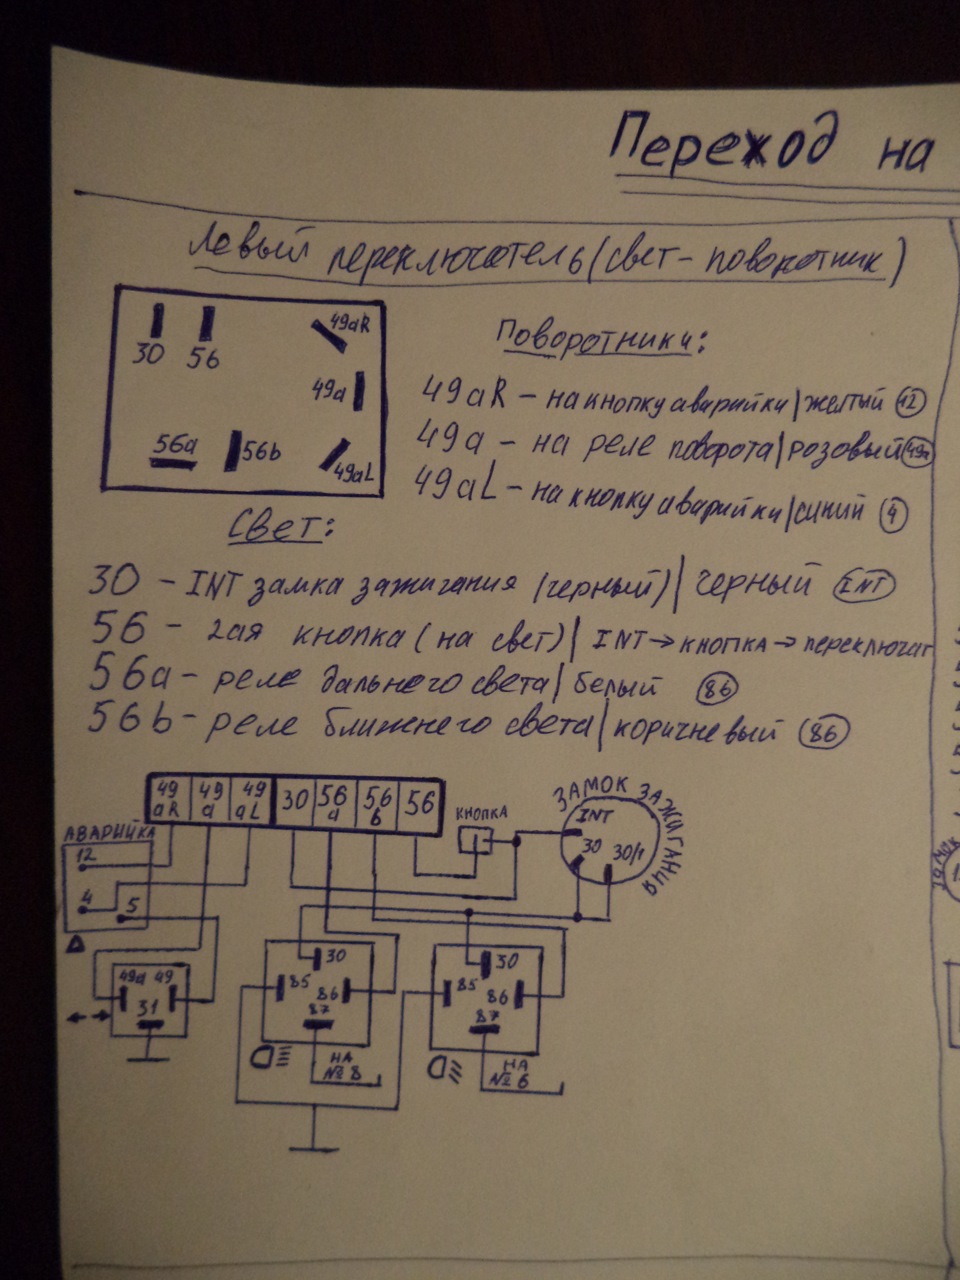 Переход на
Левый переключатель (свет-поворотник)
30
56
49aR
49a
56a
56b
49aL
Поворотники:
49aR - на кнопку аварийки / желтый 12
49a - на реле поворота / розовый 49a
49aL - на кнопку аварийки / синий 4
Свет:
30 - INT замка зажигания (черный) / черный INT
56 - 2ая кнопка (на свет) / INT → кнопка → переключат
56a - реле дальнего света / белый 86
56b - реле ближнего света / коричневый 86
49aR 49a 49aL 30 56a 56b 56
КНОПКА
ЗАМОК ЗАЖИГАНИЯ
INT
30
30/1
АВАРИЙКА
12
4
5
49a 49
31
30
85
86
87
НА
№ 8
30
85
86
87
НА
№ 6